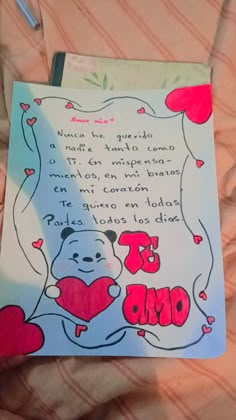 Amor mio*
Nunca he querido
a nadie tanto como
a Ti. En mispensa-
mientos, en mi brazos
en mi corazón
Te quiero en todas
Partes, todos los dias.
TE
AMO